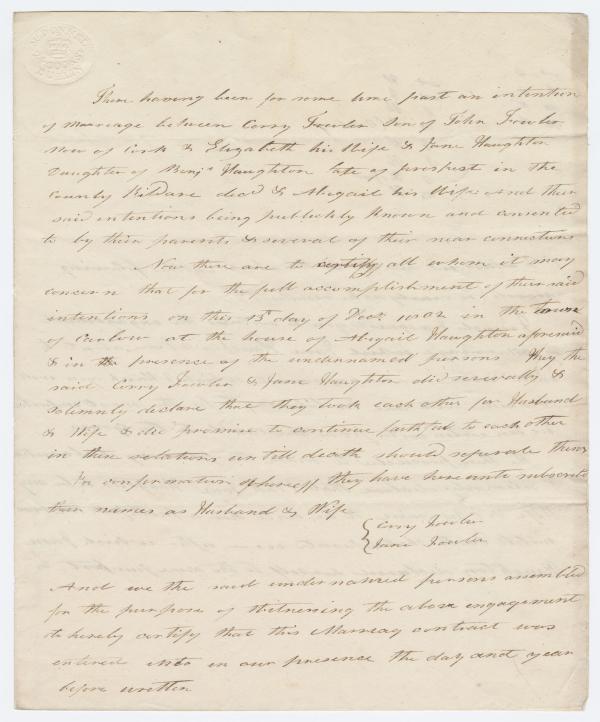 There having been for some time past an intention
of Marriage between Corry Fowler Son of John Fowler
Now of Cork & Elizabeth his Wife & Jane Haughton
Daughter of Benjn Haughton late of prospect in the
County Kildare decd & Abigail his Wife And their
said intentions being publickly Known and consented
to by their parents & several of their near connections
Now these are to certify all whom it may
concern that for the full accomplishment of their said
intentions on this 15th day of Decr 1802 in the town
of Carlow at the house of Abigail Haughton aforesaid
& in the presence of the undernamed persons They the
said Corry Fowler & Jane Haughton did severally &
solemnly declare that they took each other for Husband
& Wife & did promise to continue faithful to each other
in these relations untill death should seperate them
In confirmation whereof they have hereunto subscribd
their names as Husband & Wife
Corry Fowler
Jane Fowler
And we the said undernamed persons assembled
for the purpose of Witnening the above engagement
do hereby certify that this Marreag contract was
entered into in our presence the day and year
before written